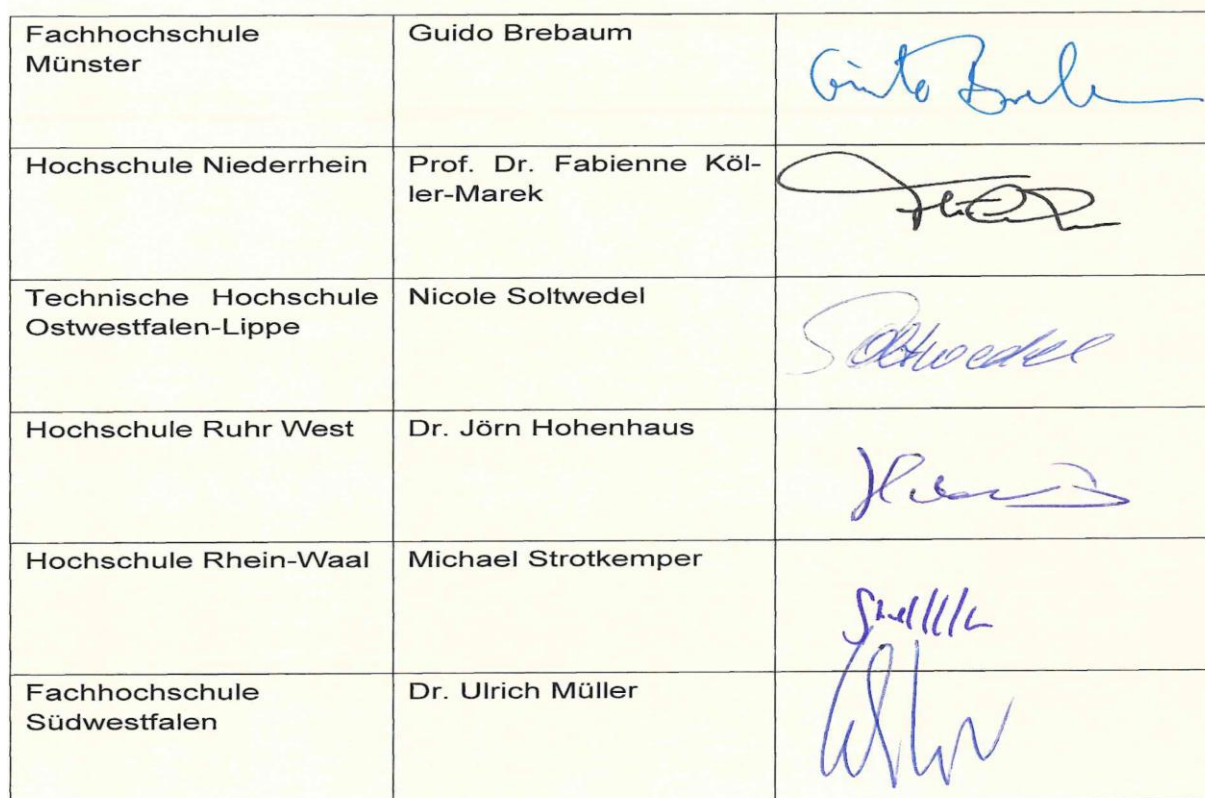 Fachhochschule
Münster
Guido Brebaum
Guido Breba
Hochschule Niederrhein
Prof. Dr. Fabienne Köl-
ler-Marek
Technische Hochschule
Ostwestfalen-Lippe
Nicole Soltwedel
Soltwedel
Hochschule Ruhr West
Dr. Jörn Hohenhaus
Hochschule Rhein-Waal
Michael Strotkemper
Fachhochschule
Südwestfalen
Dr. Ulrich Müller